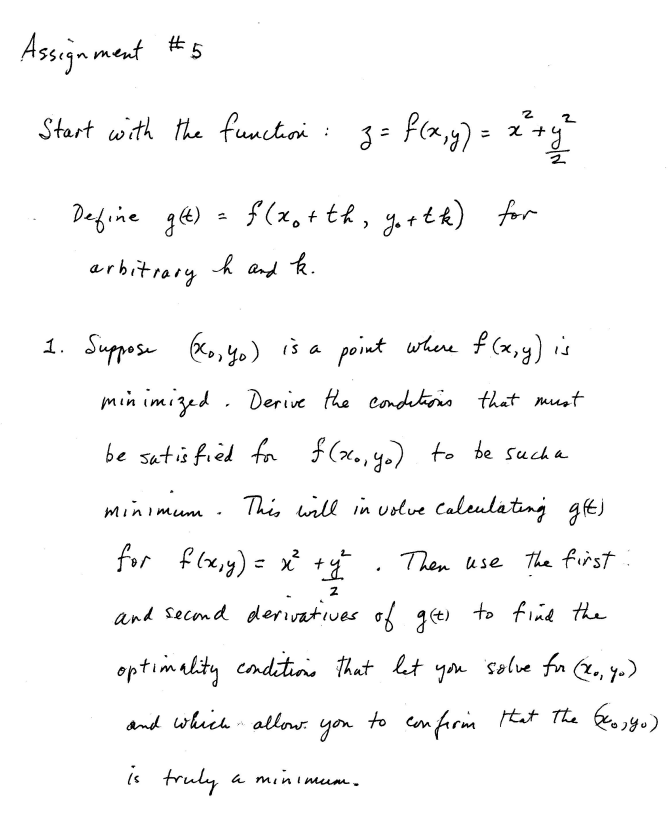 Assignment #5
Start with the function : z = f(x,y) = x² + y²/2
Define g(t) = f(x₀ + th, y₀ + tk) for
arbitrary h and k.
1. Suppose (x₀, y₀) is a point where f(x,y) is
minimized. Derive the conditions that must
be satisfied for f(x₀, y₀) to be such a
minimum. This will involve calculating g(t)
for f(x,y) = x² + y²/2 . Then use the first
and second derivatives of g(t) to find the
optimality conditions that let you solve for (x₀, y₀)
and which allow you to confirm that the (x₀, y₀)
is truly a minimum.